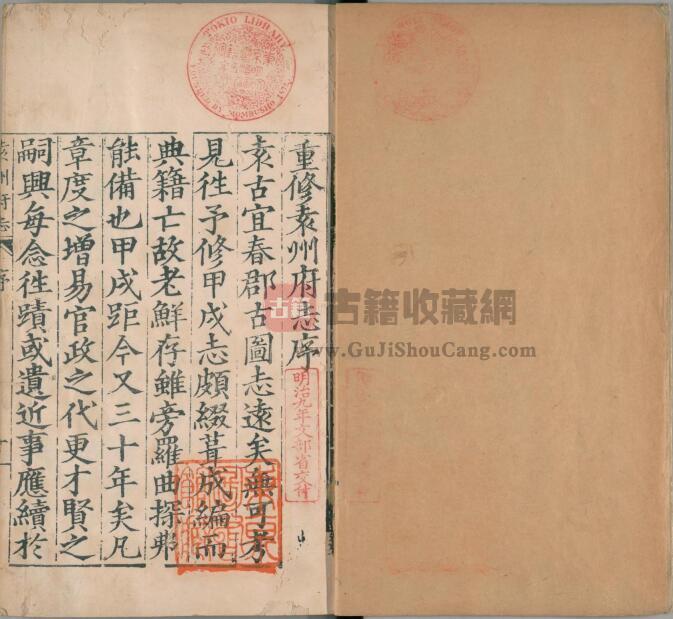 重修袁州府志序
袁古宜春郡古圖志遠矣無可考
見徃予修甲戌志頗綴葺成編而
典籍亡故老鮮存雖旁羅曲探弗
能備也甲戌距今又三十年矣凡
章度之增易官政之代更才賢之
嗣興每念徃蹟或遺近事應續於
袁州府志
序
TOKIO LIBRARY
明治九年文部省交付
古籍
古籍收藏網
www.GuJiShouCang.com